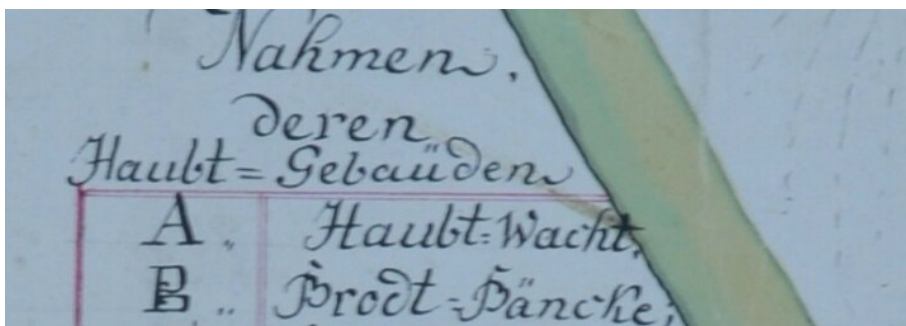 Nahmen.
deren
Haubt=Gebaüden
A.. Haubt=Wacht.
B.. Brodt=Bäncke;